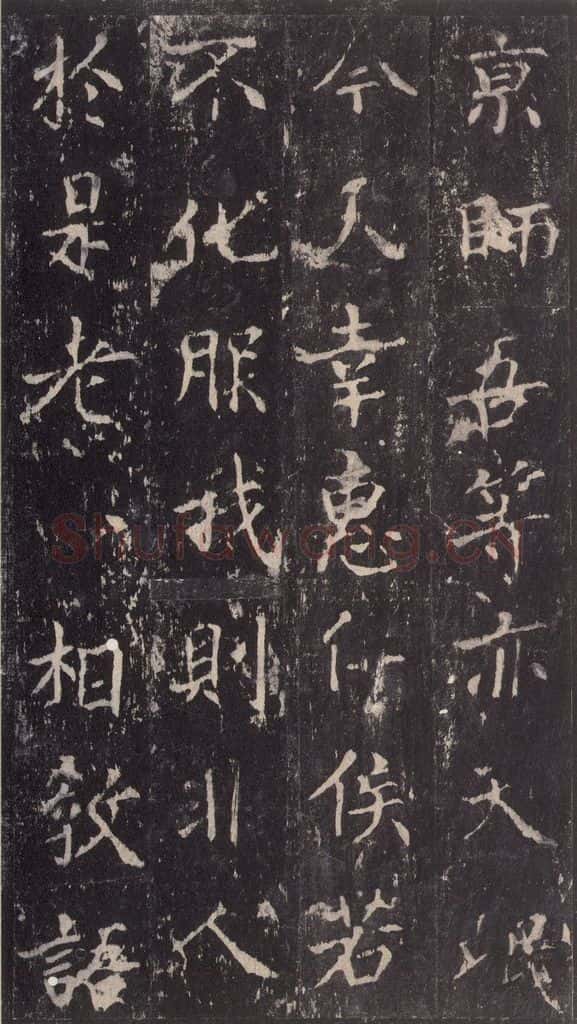 京師吾等亦天氓
今天幸惠仁侯若
不化服我則非人
於是老少相教語
Shufawang.CN